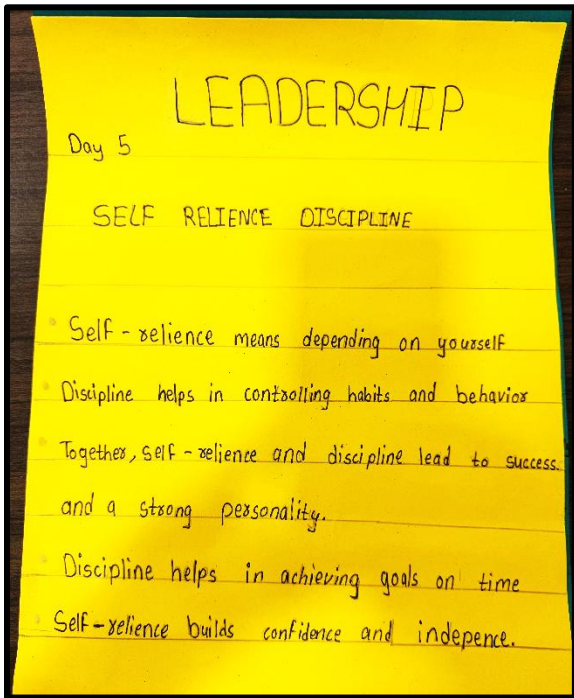 LEADERSHIP
Day 5
SELF RELIENCE DISCIPLINE
Self-relience means depending on yourself
Discipline helps in controlling habits and behavior
Together, self-relience and discipline lead to success
and a strong personality.
Discipline helps in achieving goals on time
Self-relience builds confidence and indepence.